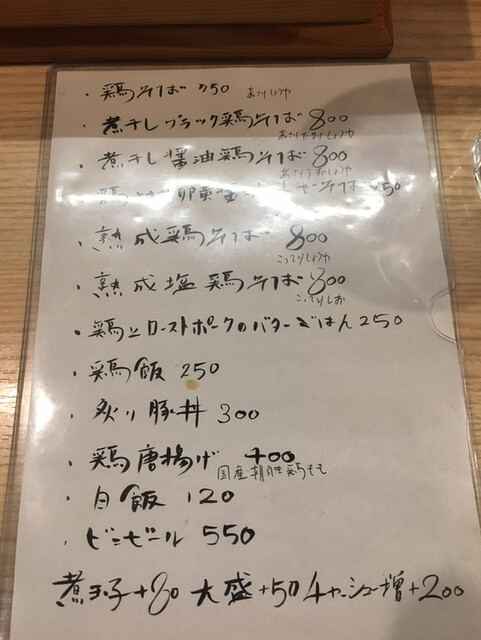 ・鶏そば 750 あさりしょうゆ
・煮干しブラック鶏そば 800
あさりたまりしょうゆ
・煮干し醤油鶏そば 800
あさりうすしょうゆ
鶏 卵黄 まぜそば 50
・熟成鶏そば 800
こってりしょうゆ
・熟成塩鶏そば 800
こってりしお
・鶏とローストポークのバターごはん 250
・鶏飯 250
・炙り豚丼 300
・鶏唐揚げ 400
国産朝引き鶏もも
・白飯 120
・ビンビール 550
煮玉子+80 大盛+50 チャーシュー増+200